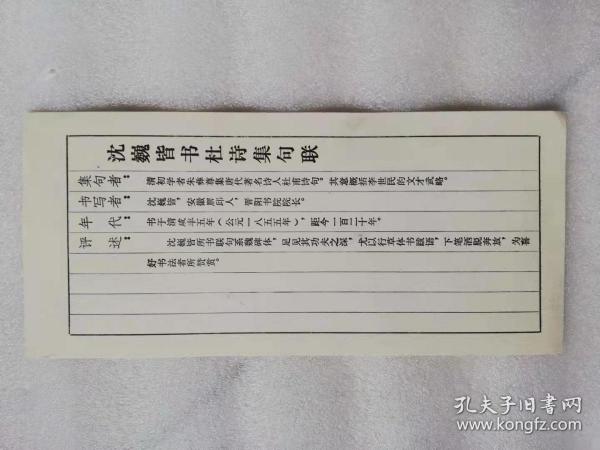 沈巍皆书杜诗集句联
集句者：清初学者朱彝尊集唐代著名诗人杜甫诗句。其意概括李世民的文才武略。
书写者：沈巍皆，安徽黟邱人，晋阳书院院长。
年代：书于清咸丰五年（公元一八五五年），距今一百二十年。
评述：沈巍皆所书联句系魏碑体，足见其功夫之深，尤以行草体书跋语，下笔洒脱奔放，为喜
好书法者所赞赏。
孔夫子旧书网
www.kongfz.com